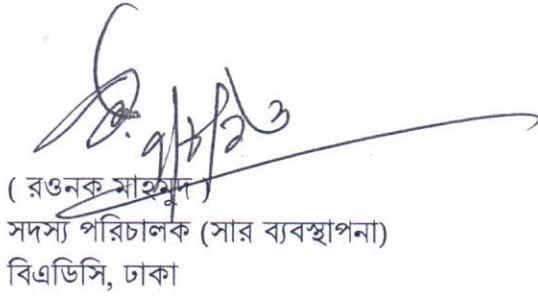 ( রওনক মাহমুদ )
সদস্য পরিচালক (সার ব্যবস্থাপনা)
বিএডিসি, ঢাকা